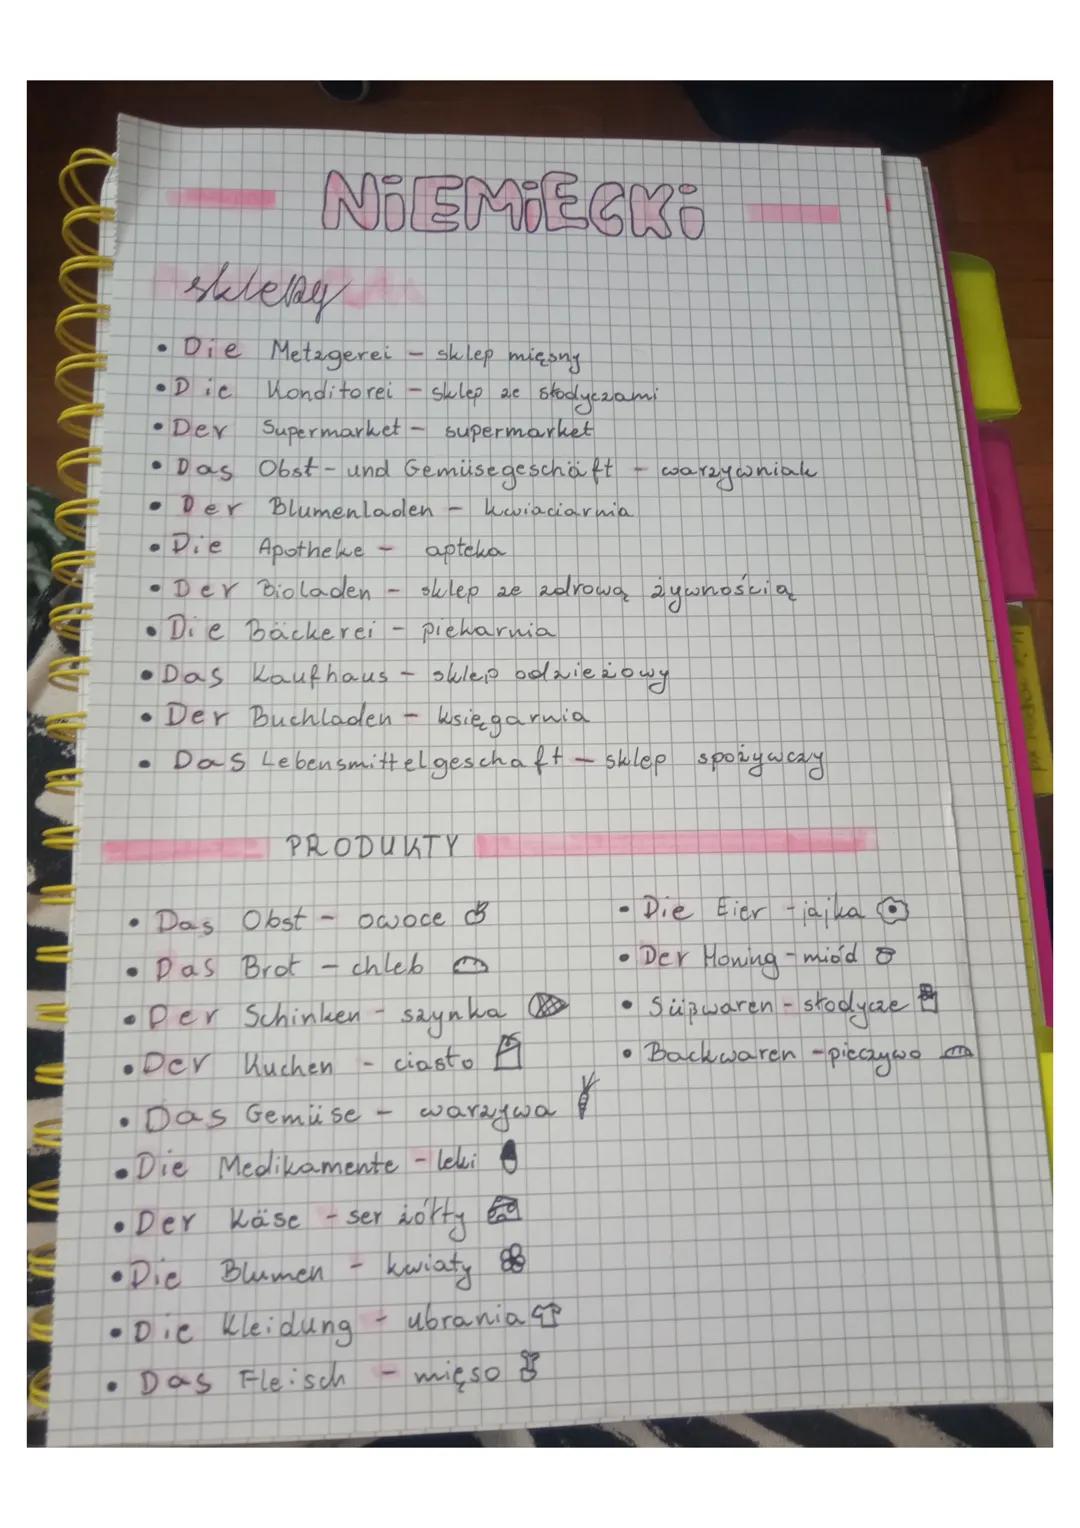 NiEMiECKi
sklepy
• Die Metzgerei - sklep mięsny
• Die Konditorei - sklep ze słodyczami
• Der Supermarket - supermarket
• Das Obst - und Gemüsegeschäft - warzywniak
• Der Blumenladen - kwiaciarnia
• Die Apotheke - apteka
• Der Bioladen - sklep ze zdrową żywnością
• Die Bäckerei - piekarnia
• Das Kaufhaus - sklep odzieżowy
• Der Buchladen - księgarnia
• Das Lebensmittelgeschaft - sklep spożywczy
PRODUKTY
• Das Obst - owoce
• Das Brot - chleb
• Der Schinken - szynka
• Der Kuchen - ciasto
• Das Gemüse - warzywa
• Die Medikamente - leki
• Der Käse - ser żółty
• Die Blumen - kwiaty
• Die Kleidung - ubrania
• Das Fleisch - mięso
• Die Eier - jajka
• Der Honing - miód
• Süßwaren - słodycze
• Backwaren - pieczywo